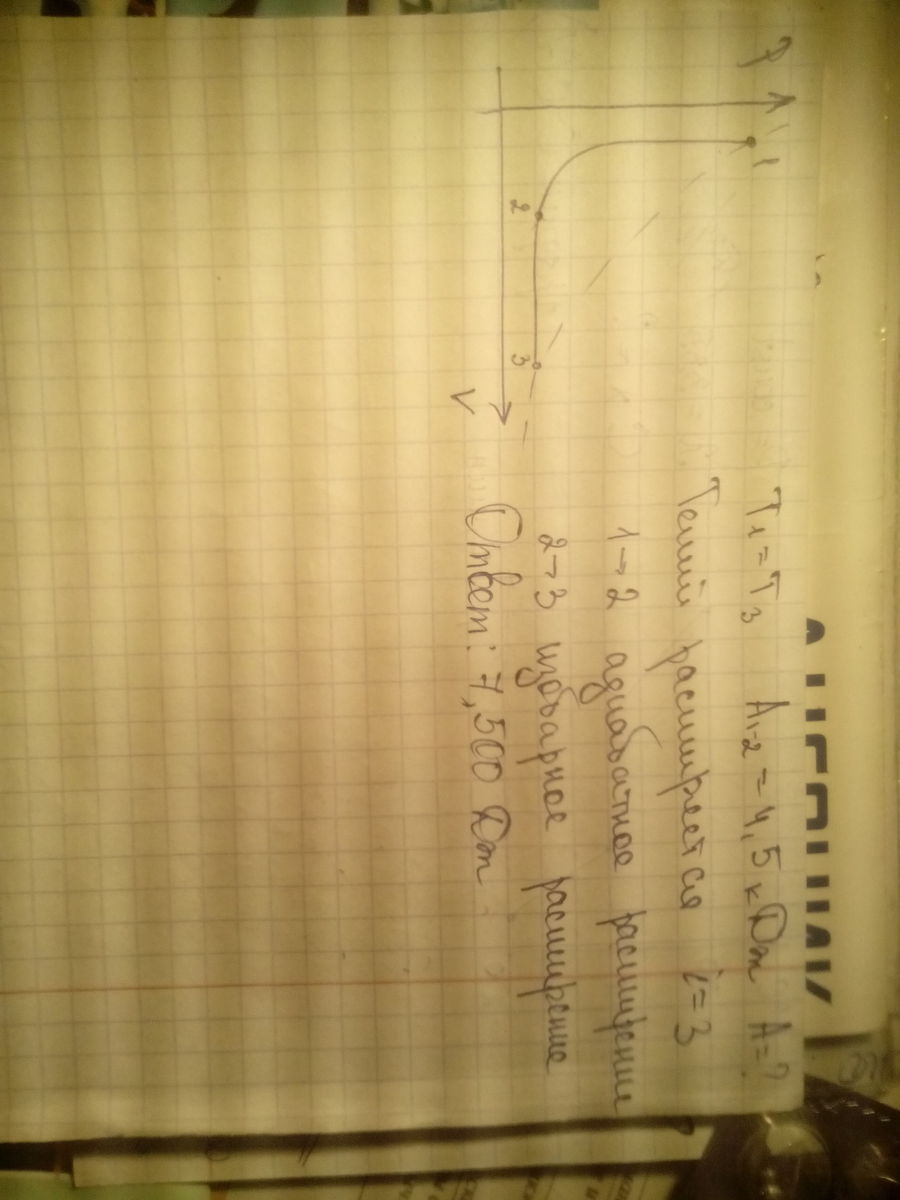 P
1
2
3
V
T1 = T3 A1-2 = 4,5 кДж A = ?
Гелий расширяется i = 3
1→2 адиабатное расширение
2→3 изобарное расширение
Ответ: 7,500 Дж